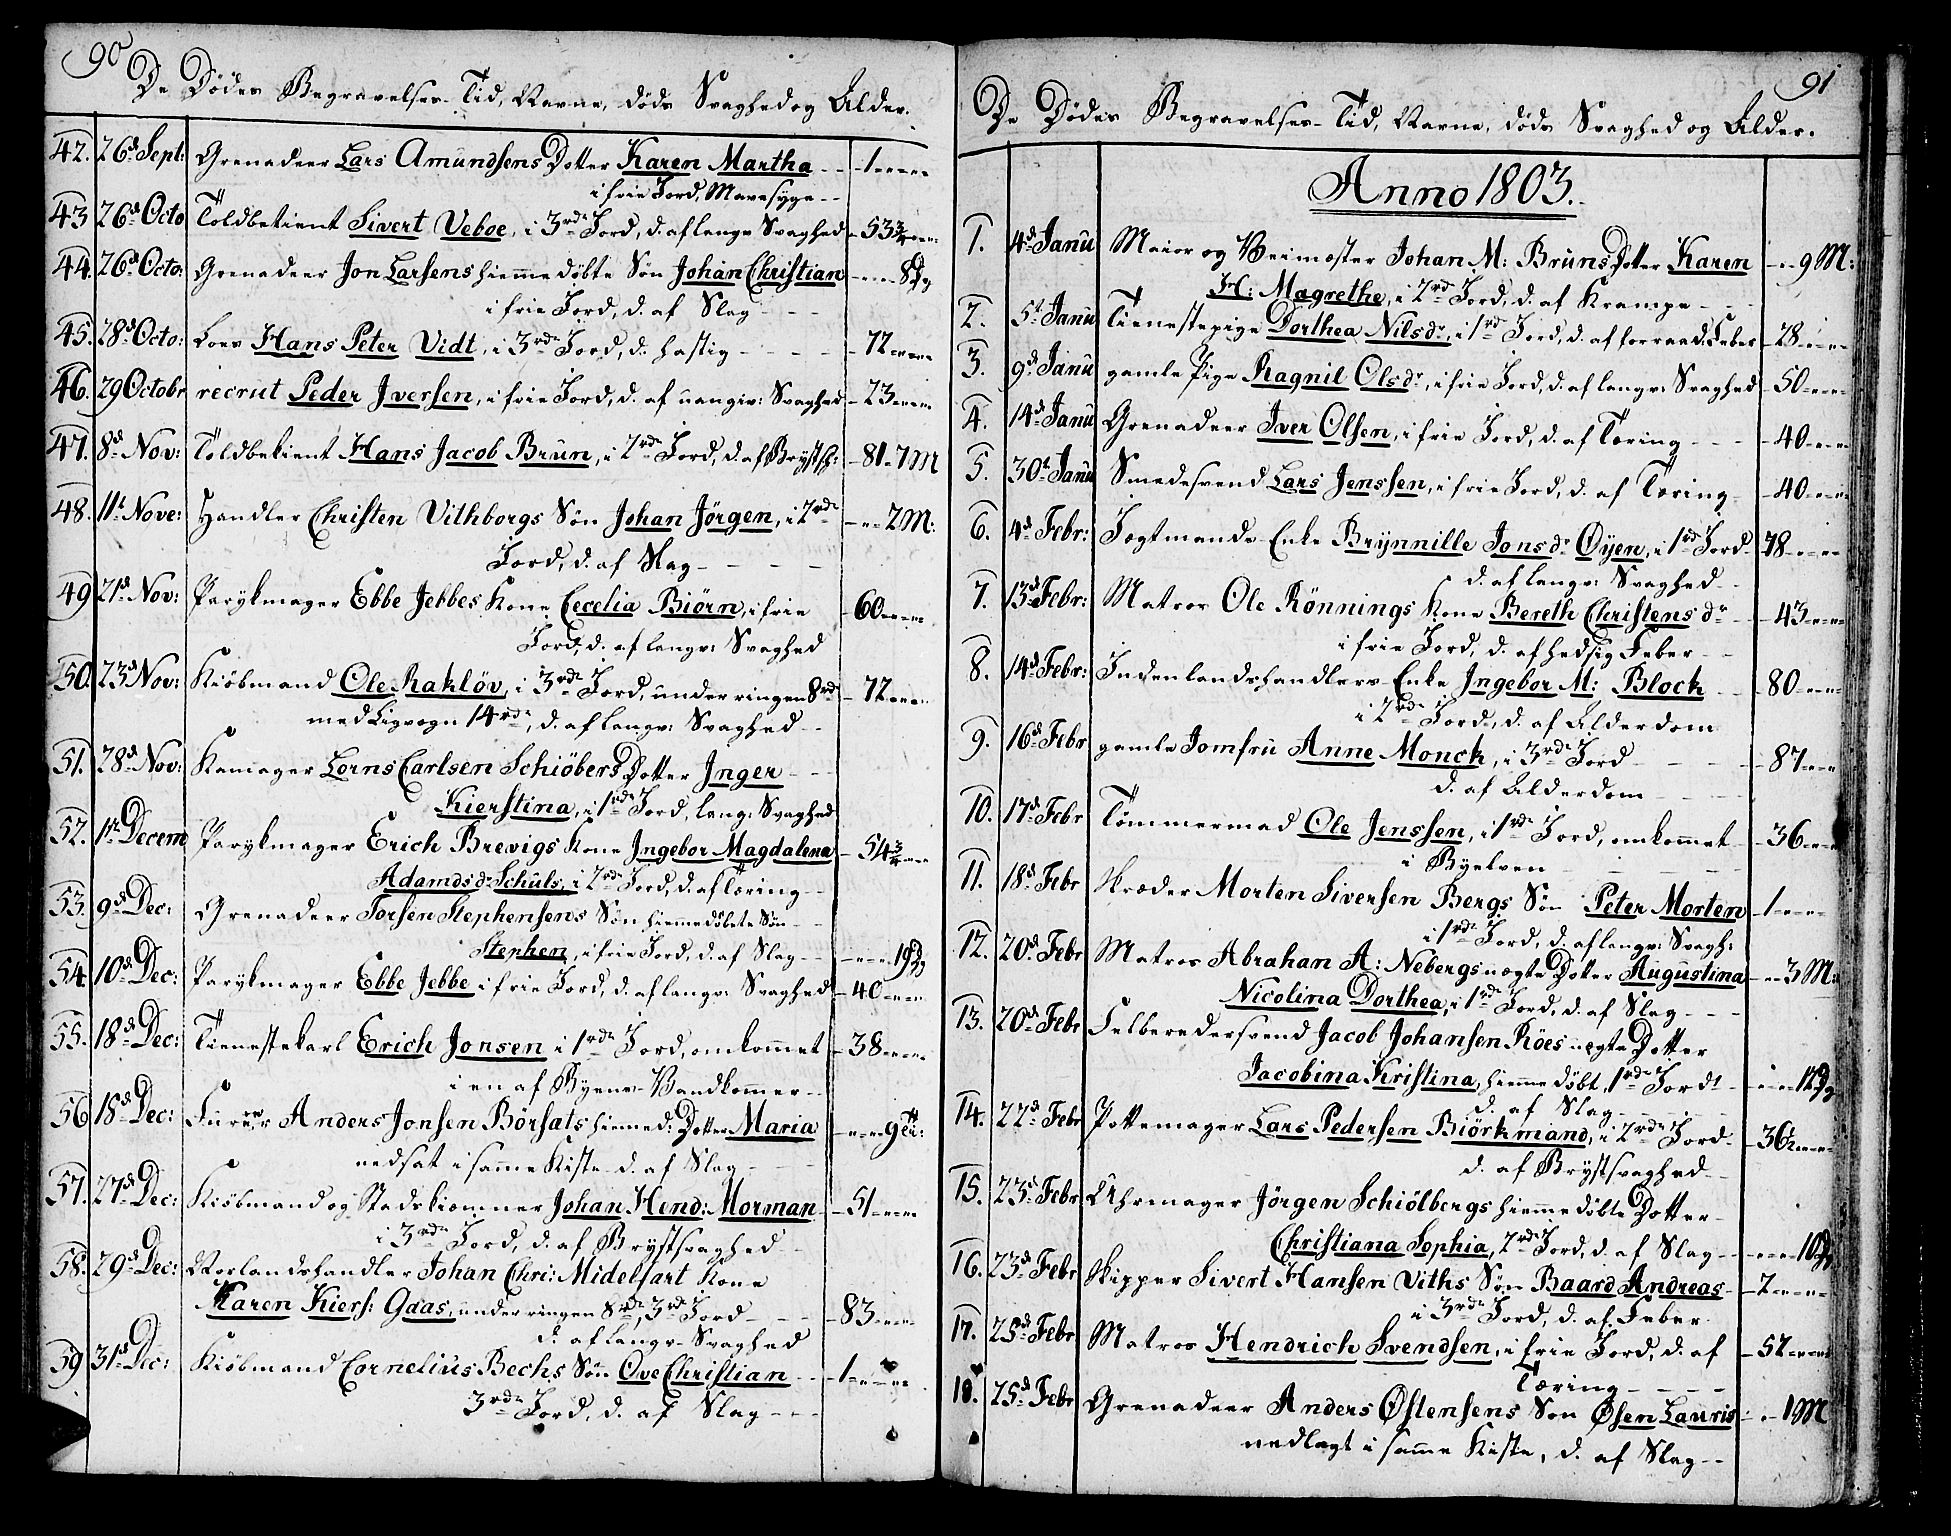 90
De Dødes Begravelses-Tid, Navne, døds Svaghed og Alder.
42. 26d Sept: Grenadeer Lars Amundsens Dotter Karen Martha -- -1----
i frie Jord, Mavesyge --
43 26d Octo Toldbetient Sivert Veboe, i 3rde Jord, d. af langv. Svaghed - 53 3/4 ---
44. 26d Octo: Grenadeer Jon Larsens hiemme døbte Søn Johan Christian ---- 8 Dg
i frie Jord, d. af Slag - - -
45. 28d Octo: Loes Hans Peter Vidt, i 3rde Jord, d. hastig - - - - -72----
46. 29 Octobr recrut Peder Iversen, i frie Jord, d. af uangiv: Svaghed -23----
47. 8d Nov: Toldbetient Hans Jacob Brun, i 2rde Jord, d. af Brystsv: -81-7M
48. 11t Nove: Handler Christen Vithborgs Søn Johan Jörgen, i 2rde - - - 2M:
Jord, d. af Slag - - - - -
49 21d Nov: Parÿkmager Ebbe Jebbes Kone Cecelia Biörn, i frie -60----
Jord, d. af langv: Svaghed
50. 23d Nov: Kiöbmand Ole Raklöv, i 3rde Jord, under ringen 8rde -72----
med Ligvogn 14rde, d. af langv: Svaghed --
51. 28d Nov: Kamager Lorns Carlsen Schiöbers Dotter Inger - - -
Kierstina, i 1rde Jord, lang: Svaghed
52. 1te Decem Parÿkmager Erich Brevigs Kone Ingebor Magdalena -54 3/4 ---
Adamsdr Schuls, i 2rde Jord, d. af Tæring --
53. 9d Dec: Grenadeer Torsen Stephensens Søn hiemmedøbete Søn - -
Stephen, i frie Jord, d. af Slag - - - - - - 19 Dg
54 10d Dec: Parÿkmager Ebbe Jebbe i frie Jord, d. af langv: Svaghed -40----
55. 18d Dec: Tienestekarl Erich Jonsen i 1rde Jord, omkommet -38----
i en af Byens Vandkommer --
56 18d Dec: Fureer Anders Jonsen Börsats hiemmed: Dotter Maria ----9 Ti:
nedsat i samme Kiste d. af Slag - - -
57. 27d Dec: Kiöbmand og Stadskiæmner Johan Hend: Morman -51----
i 3rde Jord, d. af Brystsvaghed --
58. 29d Dec: Norlandshandler Johan Chri: Midelfart Kone
Karen Kiers: Gaas, under ringen 8rde, 3rde Jord - - - -83----
d. af langv. Svaghed
59 31d Dec: Kiöbmand Cornelius Bechs Søn Ove Christian - - - -1----
3rde Jord, d. af Slag - - -
91
De Dødes Begravelses-Tid, Navne, døds Svaghed og Alder.
Anno 1803.
1. 4d Janu Maior og Veimester Johan M: Bruns Dotter Karen - - 9 M:
H: Magrethe, i 2rde Jord, d. af Krampe - - -
2. 5t Janu Tienestepige Dorthea Nilsdr, i 1rde Jord, d. af forraad: Feber -28----
3. 9d Janu gamle Pige Ragnil Olsdr, i frie Jord, d. af langv: Svaghed -50----
4. 14d Janu Grenadeer Iver Olsen, i frie Jord, d. af Tæring - - - -40----
5. 30t Janu Smedesvend Lars Jenssen, i frie Jord, d. af Tæring - -40----
6. 4d Febr: Jægtmands Enke Brynnille Jonsdr Øyen, i 1rde Jord -78----
d. af langv: Svaghed -
7. 13d Febr: Matros Ole Rönnings Kone Bereth Christensdr - -43----
i frie Jord, d. af hedsig Feber --
8. 14d Febr: Indenlandshandlers Enke Ingebor M: Block - - -80----
i 2rde Jord, d. af Alderdom
9. 16d Febr gamle Jomfru Anne Monck, i 3rde Jord - - - - -87----
d. af Alderdom - - - -
10. 17d Febr Tømmermad Ole Jenssen, i 1rde Jord, omkommet -36----
i Byelven - - - -
11. 18d Febr Skræder Morten Siversen Bergs Søn Peter Morten -1----
i 1rde Jord, d. af langv: Svagh:
12. 20d Febr Matros Abrahan A: Nebergs uægte Dotter Augustina - - 3 M:
Nicolina Dorthea, i 1rde Jord, d. af Slag - - -
13. 20d Febr Felberedersvend Jacob Johansen Röes uægte Dotter
Jacobina Kristina, hiemme døbt, 1rde Jord - - - - 12 Dg
d. af Slag - - -
14. 22d Febr Pottemager Lars Pedersen Biörkmand, i 2rde Jord - -36 1/2 ---
d. af Brystsvaghed --
15. 23d Febr Uhrmager Jörgen Schiölbergs hiemmedøbte Dotter -
Christiana Sophia, 2rde Jord, d. af Slag - - - - - 10 Dg
16. 23d Febr Skipper Sivert Hansen Viths Søn Baard Andreas - -2----
i 3rde Jord, d. af Feber
17. 25d Febr Matros Hendrich Svendsen, i frie Jord, d. af -52----
Tæring - - - -
18. 25d Febr Grenadeer Anders Østensens Søn Øsen Lauris - - 1M
nedlagt i samme Kiste, d. af Slag --